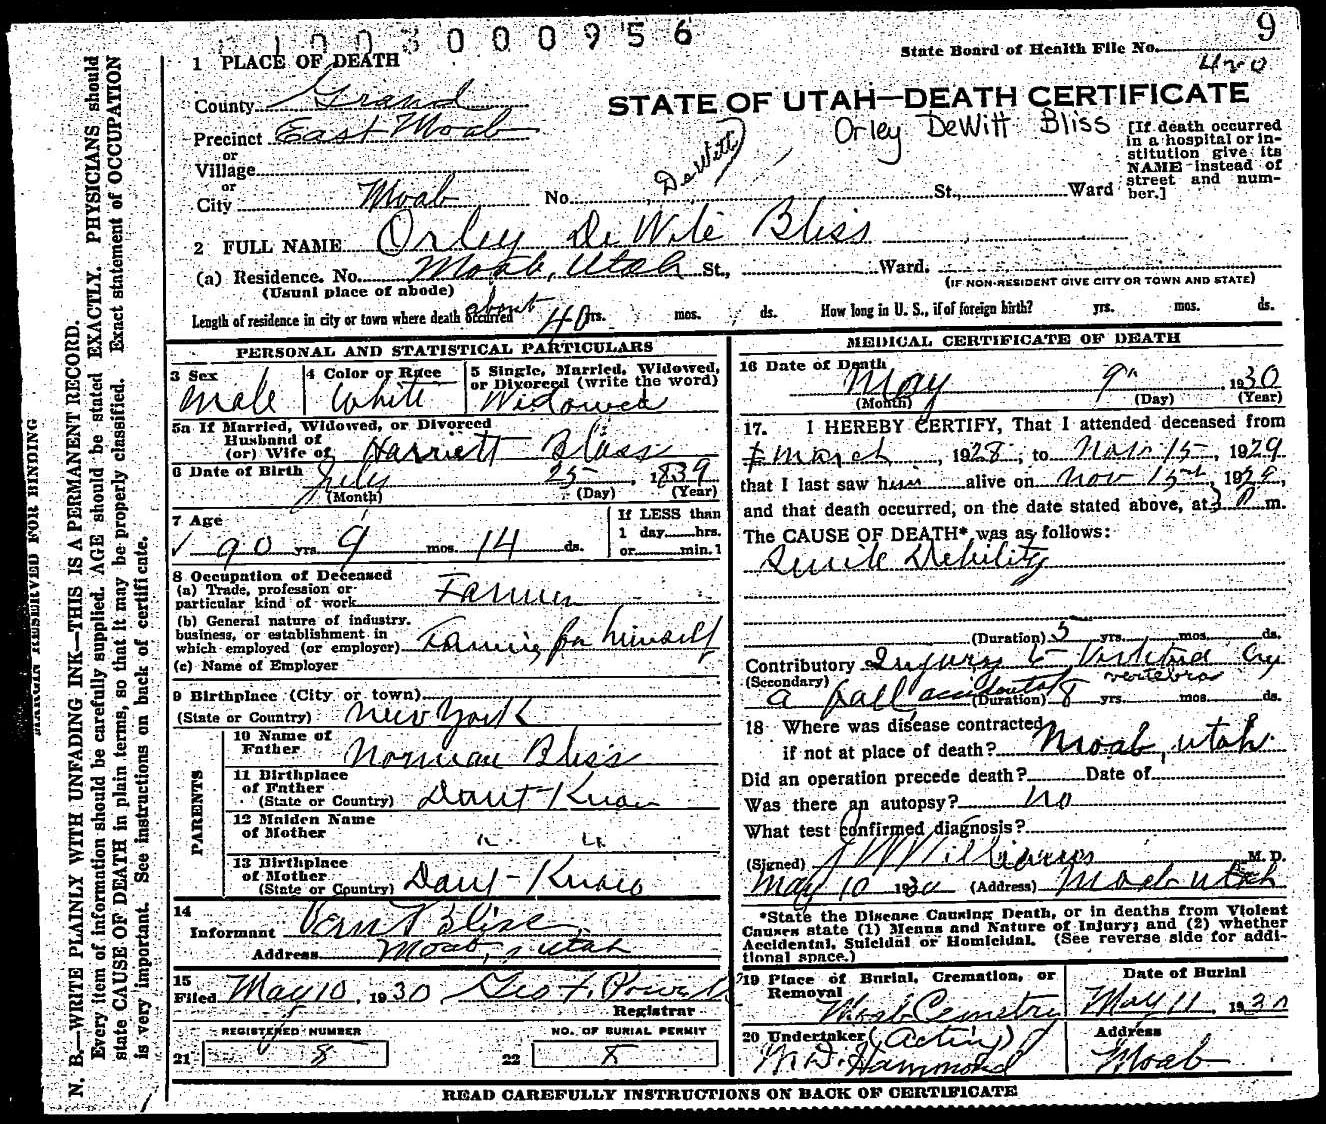 0 1 0 0 3 0 0 0 9 5 6
9
State Board of Health File No.
420
1 PLACE OF DEATH
County Grand
STATE OF UTAH—DEATH CERTIFICATE
Precinct East Moab
Orley DeWitt Bliss
or
Village
or
City Moab No. St., Ward
DeWitt
[If death occurred
in a hospital or in-
stitution give its
NAME instead of
street and num-
ber.]
2 FULL NAME Orley DeWite Bliss
(a) Residence. No. Moab, Utah St., Ward.
(Usual place of abode)
(IF NON-RESIDENT GIVE CITY OR TOWN AND STATE)
Length of residence in city or town where death occurred about 40 yrs. mos. ds. How long in U. S., if of foreign birth? yrs. mos. ds.
PERSONAL AND STATISTICAL PARTICULARS
3 Sex
Male
4 Color or Race
White
5 Single, Married, Widowed,
or Divorced (write the word)
Widowed
5a If Married, Widowed, or Divorced
Husband of
(or) Wife of Harriett Bliss
6 Date of Birth July 25, 1839
(Month) (Day) (Year)
7 Age
90 yrs. 9 mos. 14 ds.
If LESS than
1 day hrs.
or min.
8 Occupation of Deceased
(a) Trade, profession or
particular kind of work Farmer
(b) General nature of industry,
business, or establishment in
which employed (or employer) Farming for himself
(c) Name of Employer
9 Birthplace (City or town)
(State or Country) New York
PARENTS
10 Name of
Father Norman Bliss
11 Birthplace
of Father
(State or Country) Dont Know
12 Maiden Name
of Mother " "
13 Birthplace
of Mother
(State or Country) Dont Know
14
Informant Vern Bliss
Address Moab, Utah
15
Filed May 10, 1930 Geo. F. Powell
Registrar
REGISTERED NUMBER
21 8
NO. OF BURIAL PERMIT
22 8
MEDICAL CERTIFICATE OF DEATH
16 Date of Death
May 9th, 1930
(Month) (Day) (Year)
17. I HEREBY CERTIFY, That I attended deceased from
March, 1928, to Nov 15, 1929
that I last saw him alive on Nov 15th, 1929,
and that death occurred, on the date stated above, at 3 P m.
The CAUSE OF DEATH* was as follows:
Senile Debility
(Duration) 5 yrs. mos. ds.
Contributory Injury to vertebra by
(Secondary) vertebra
a fall accidental (Duration) 8 yrs. mos. ds.
18 Where was disease contracted
if not at place of death? Moab, Utah
Did an operation precede death? Date of
Was there an autopsy? no
What test confirmed diagnosis?
(Signed) J W Williams M. D.
May 10 1930 (Address) Moab Utah
*State the Disease Causing Death, or in deaths from Violent
Causes state (1) Means and Nature of Injury; and (2) whether
Accidental, Suicidal or Homicidal. (See reverse side for addi-
tional space.)
19 Place of Burial, Cremation, or
Removal
Moab Cemetry
Date of Burial
May 11, 1930
20 Undertaker (Acting)
W. D. Hammond
Address
Moab
READ CAREFULLY INSTRUCTIONS ON BACK OF CERTIFICATE
MARGIN RESERVED FOR BINDING
N. B.—WRITE PLAINLY WITH UNFADING INK—THIS IS A PERMANENT RECORD.
Every item of information should be carefully supplied. AGE should be stated EXACTLY. PHYSICIANS should
state CAUSE OF DEATH in plain terms, so that it may be properly classified. Exact statement of OCCUPATION
is very important. See instructions on back of certificate.